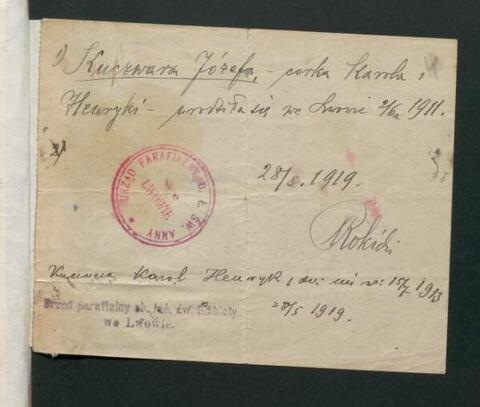 1) Kuczwara Józefa, – córka Karola i
Henryki – urodziła się we Lwowie 1911.
2)
URZĄD PARAFIALNY O. Ł. ŚW. ANNY
WE LWOWIE
28/5. 1919.
Rokicki
Karol Henryk 15/7 1913
Urząd parafialny ob. łać. św. Elżbiety
we Lwowie.
28/5 1919.